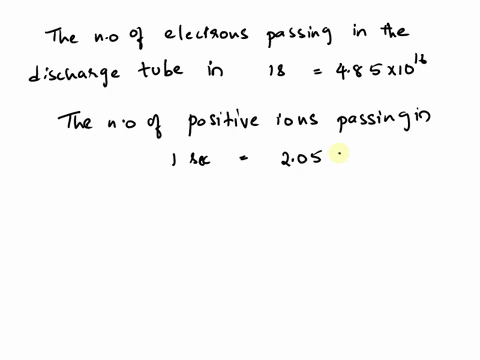 The n.o of electrons passing in the
discharge tube in 1s = 4.85×10¹⁶
The n.o of positive ions passing in
1 sec = 2.05